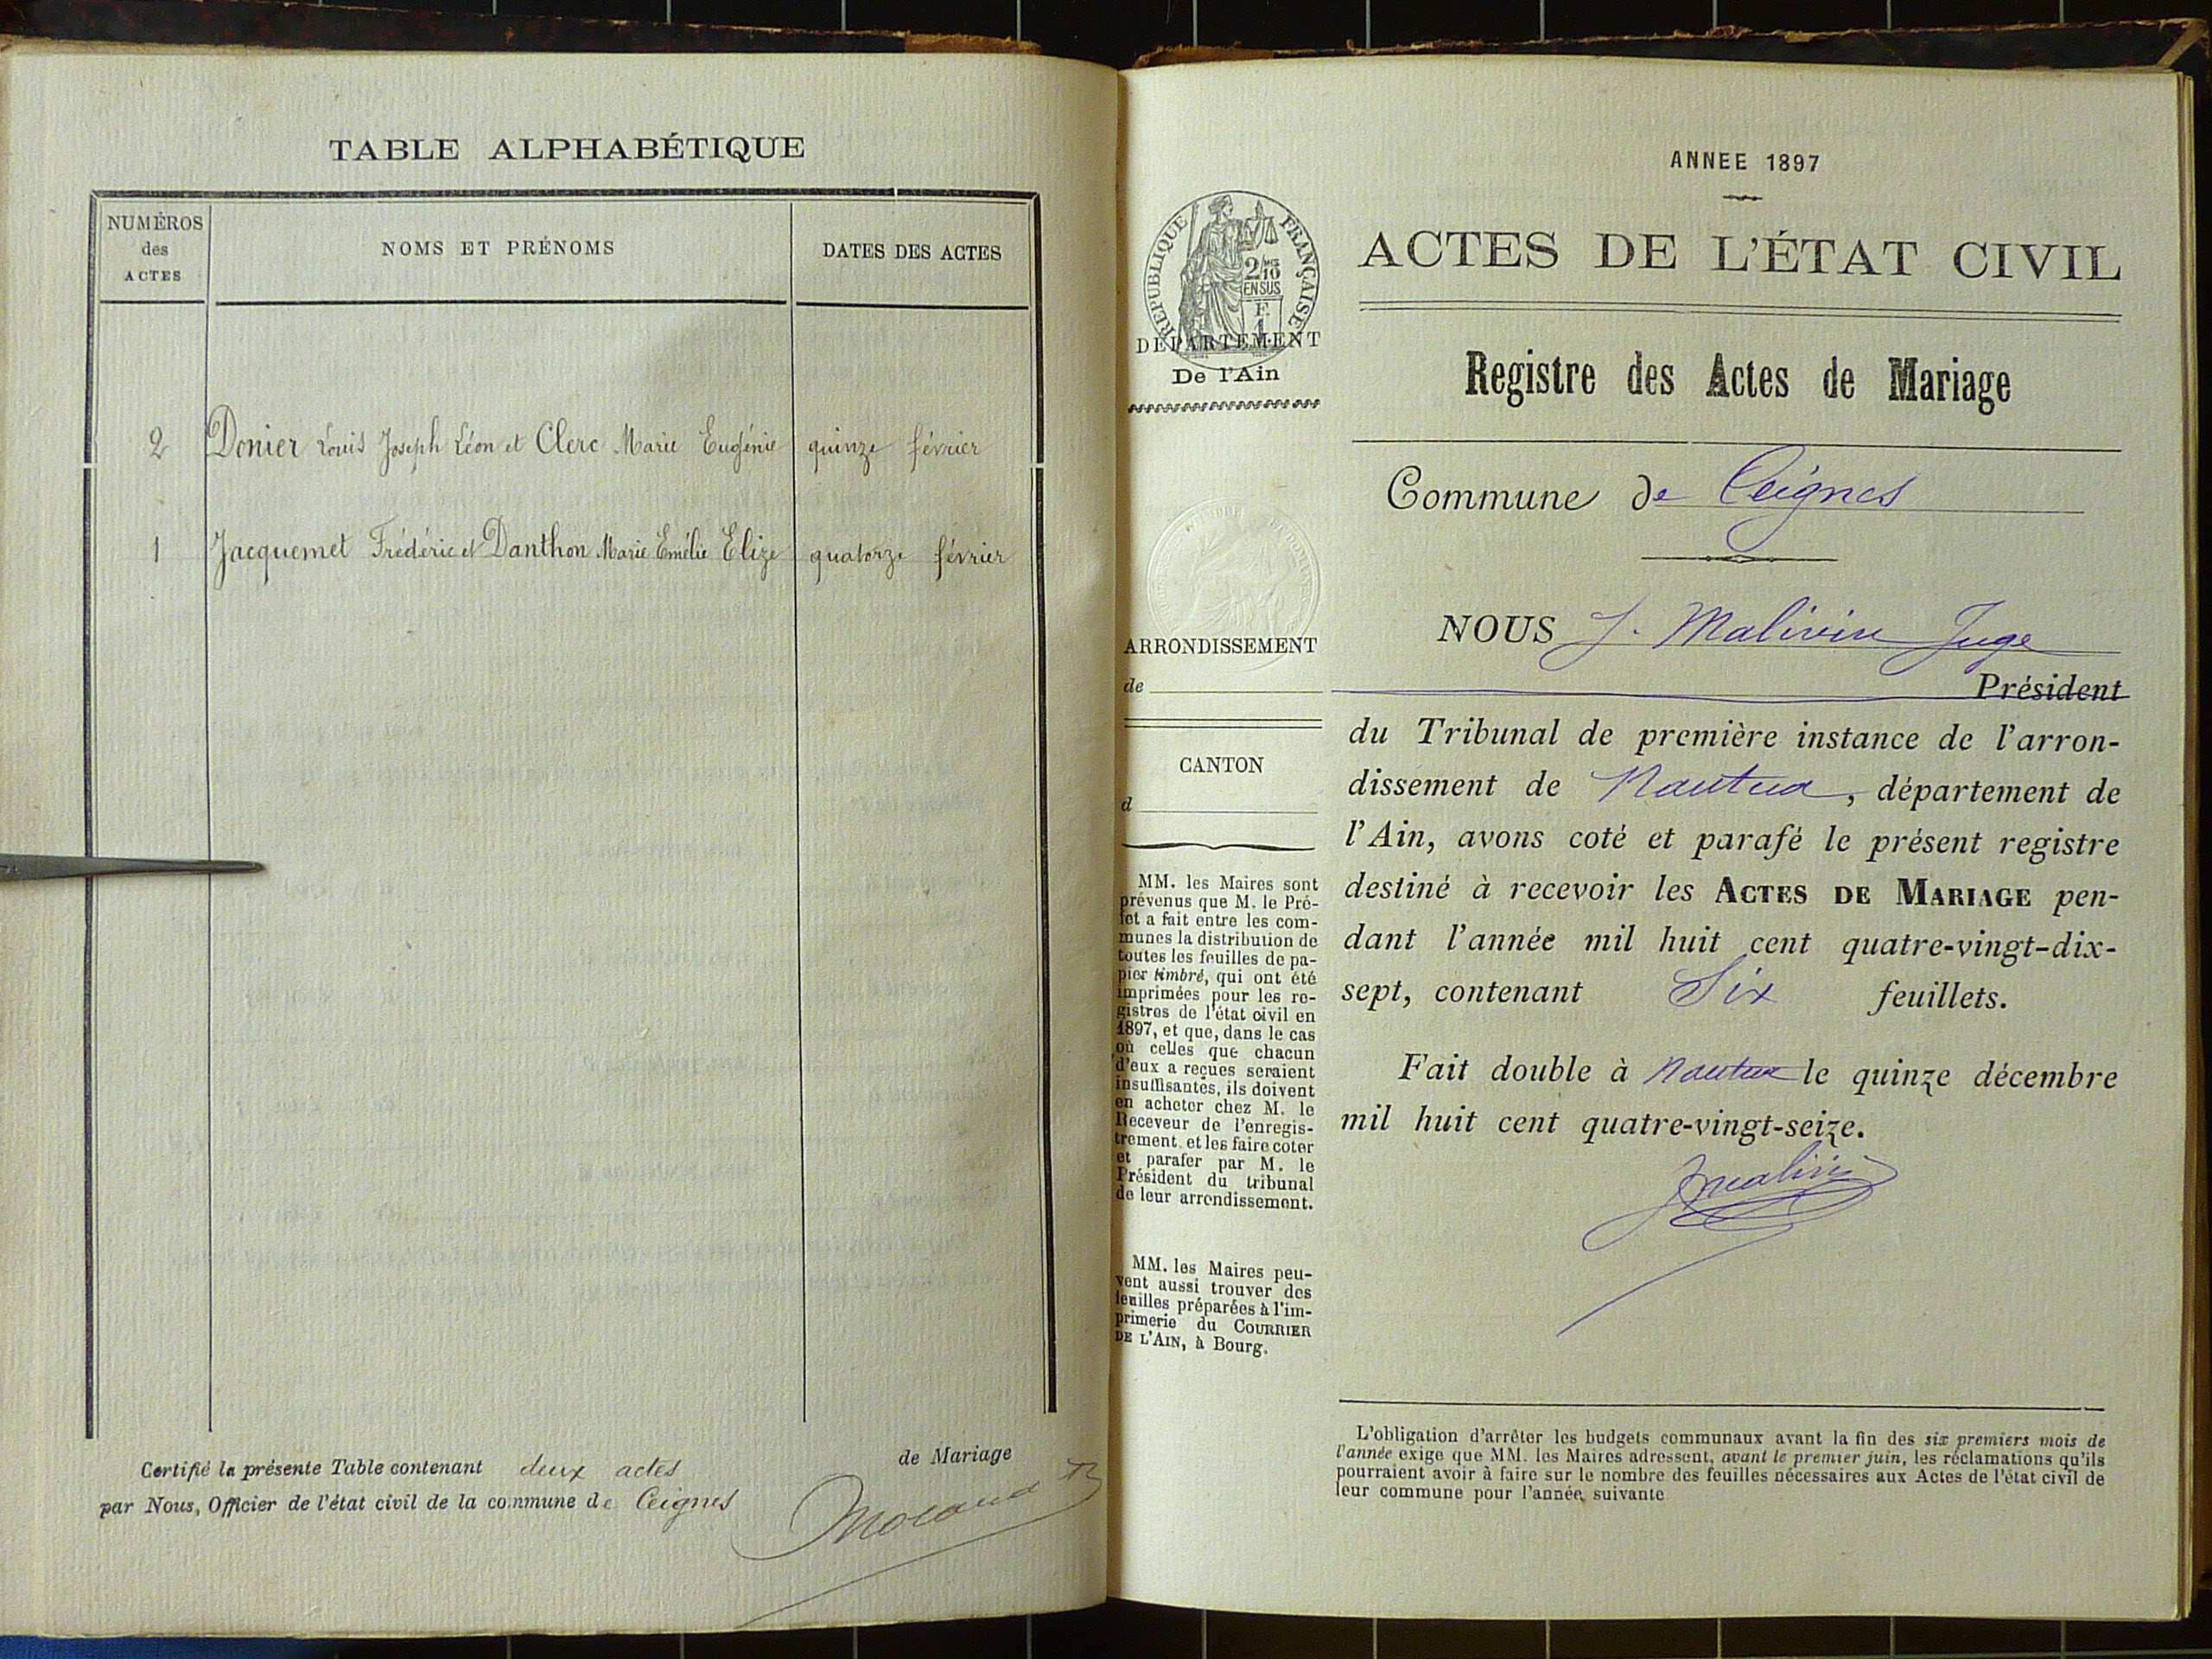 TABLE ALPHABÉTIQUE
NUMÉROS
des
ACTES
NOMS ET PRÉNOMS
DATES DES ACTES
2 Donier Louis Joseph Léon et Clerc Marie Eugénie quinze février
1 Jacquemet Frédéric et Danthon Marie Emélie Elize quatorze février
Certifié la présente Table contenant deux actes de Mariage
par Nous, Officier de l'état civil de la commune de Ceignes
ANNEE 1897
REPUBLIQUE FRANÇAISE
2/10
EN SUS
F.
1
DÉPARTEMENT
De l'Ain
ARRONDISSEMENT
de
CANTON
d
MM. les Maires sont
prévenus que M. le Pré-
fet a fait entre les com-
munes la distribution de
toutes les feuilles de pa-
pier timbré, qui ont été
imprimées pour les re-
gistres de l'état civil en
1897, et que, dans le cas
où celles que chacun
d'eux a reçues seraient
insuffisantes, ils doivent
en acheter chez M. le
Receveur de l'enregis-
trement, et les faire coter
et parafer par M. le
Président du tribunal
de leur arrondissement.
MM. les Maires peu-
vent aussi trouver des
feuilles préparées à l'im-
primerie du COURRIER
DE L'AIN, à Bourg.
ACTES DE L'ÉTAT CIVIL
Registre des Actes de Mariage
Commune de Ceignes
NOUS J. Malivin Juge
Président
du Tribunal de première instance de l'arron-
dissement de Nantua, département de
l'Ain, avons coté et parafé le présent registre
destiné à recevoir les ACTES DE MARIAGE pen-
dant l'année mil huit cent quatre-vingt-dix-
sept, contenant Six feuillets.
Fait double à Nantua le quinze décembre
mil huit cent quatre-vingt-seize.
JMalivin
L'obligation d'arrêter les budgets communaux avant la fin des six premiers mois de
l'année exige que MM. les Maires adressent, avant le premier juin, les réclamations qu'ils
pourraient avoir à faire sur le nombre des feuilles nécessaires aux Actes de l'état civil de
leur commune pour l'année suivante